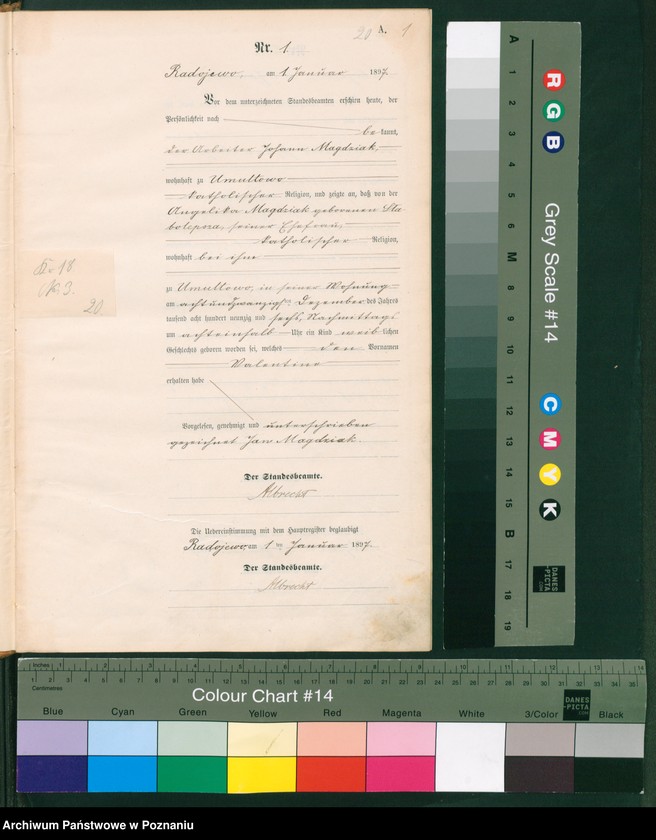 20 A. 1
Nr. 1.
Radojewo, am 1 Januar 1897.
Vor dem unterzeichneten Standesbeamten erschien heute, der
Persönlichkeit nach
be kannt,
der Arbeiter Johann Magdziak,
wohnhaft zu Umultowo
katholischer Religion, und zeigte an, daß von der
Angelika Magdziak geborenen Sta
bolepsza, seiner Ehefrau,
katholischer Religion,
wohnhaft bei ihm
zu Umultowo, in seiner Wohnung
am acht und zwanzigsten Dezember des Jahres
tausend acht hundert neunzig und sechs, Nachmittags
um achteinhalb Uhr ein Kind weib lichen
Geschlechts geboren worden sei, welches den Vornamen
Valentine
erhalten habe
Vorgelesen, genehmigt und unterschrieben
gezeichnet Jan Magdziak.
Der Standesbeamte.
Albrecht
Die Uebereinstimmung mit dem Hauptregister beglaubigt
Radojewo am 1 ten Januar 1897.
Der Standesbeamte.
Albrecht
18
No 3.
20
A 1 2 3 4 5 6 M 8 9 10 11 12 13 14 15 B 17 18 19
R G B
Grey Scale #14
C M Y K
DANES-PICTA.COM
Inches 1 2 3 4 5 6 7 8 9 10 11 12 13 14
1 2 3 4 5 6 7 8 9 10 11 12 13 14 15 16 17 18 19 20 21 22 23 24 25 26 27 28 29 30 31 32 33 34 35
Centimetres
Colour Chart #14
DANES-PICTA.COM
Blue Cyan Green Yellow Red Magenta White 3/Color Black
Archiwum Państwowe w Poznaniu